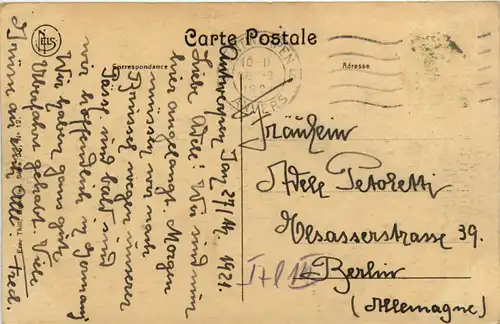 Carte Postale
Correspondance
Adresse
ANTWERPEN
ANVERS
Antwerpen, 27/ 1921.
Liebe Adele! Wir sind nun
hier angelangt. Morgen
müssen wir nach
Brüssel wegen unserer
Pässe und bald sind
wir hoffentlich in Germany
Wir haben ganz gute
Überfahrt gehabt. Viele
Grüsse an euch Alle
Fred.
Fräulein
Adele Petoletti
Elsasserstrasse 39.
Berlin
(Allemagne)
NELS